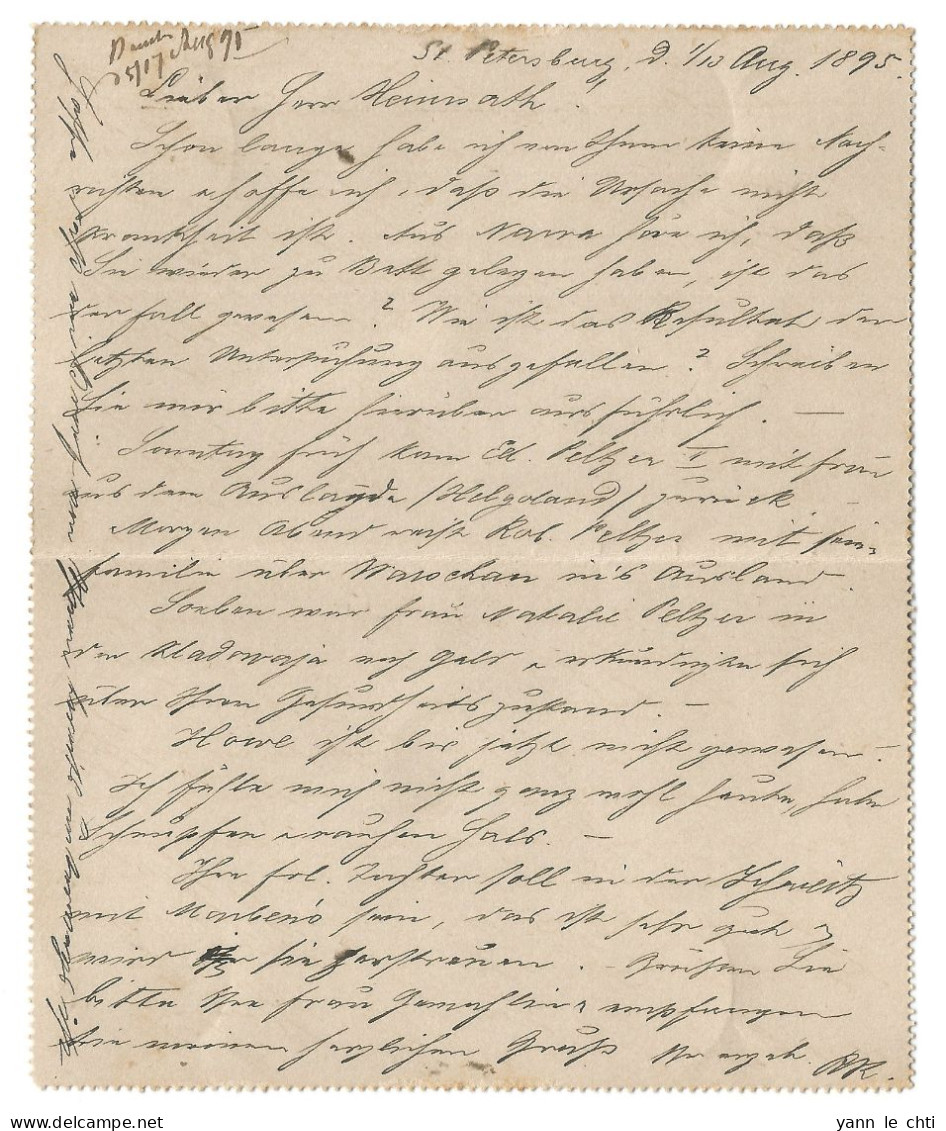 25/17 Aug 95
St. Petersburg, d. 1/13 Aug. 1895.
Lieber Herr Heimrath.
Schon lange habe ich von Ihnen keine Nach-
richten & hoffe ich, daß die Ursache nicht
Krankheit ist. Aus Narva höre ich, daß
Sie wieder zu Bett gelegen haben, ist das
der Fall gewesen? Wie ist das Resultat der
letzten Untersuchung ausgefallen? Schreiben
Sie mir bitte hierüber ausführlich. —
Sonntag früh kam Ed. Peltzer mit Frau
aus dem Auslande (Helgoland) zurück —
Morgen Abend reist Rob. Peltzer mit sein.
Familie über Warschau in's Ausland.
Soeben war Frau Natalie Peltzer in
der Kladowaja nach Geld & erkundigte sich
über Ihren Gesundheitszustand. —
Howe ist bis jetzt nicht gewesen. —
Ich fühle mich nicht ganz wohl heute, habe
Schnupfen & rauhen Hals. —
Ihre frl. Tochter soll in der Schweitz
mit sein, das ist sehr gut &
wird sie zerstreuen. Grüßen Sie
bitte Ihre Frau Gemahlin & empfangen
Sie meinen herzlichen Gruß. Ihr ergeb. RK.
yann le chti